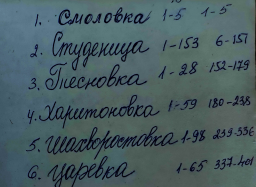 1. Смоловка 1-5 1-5
2. Студеница 1-153 6-151
3. Тесновка 1-28 152-179
4. Харитоновка 1-59 180-238
5. Шахворостовка 1-98 239-336
6. Царевка 1-65 337-401